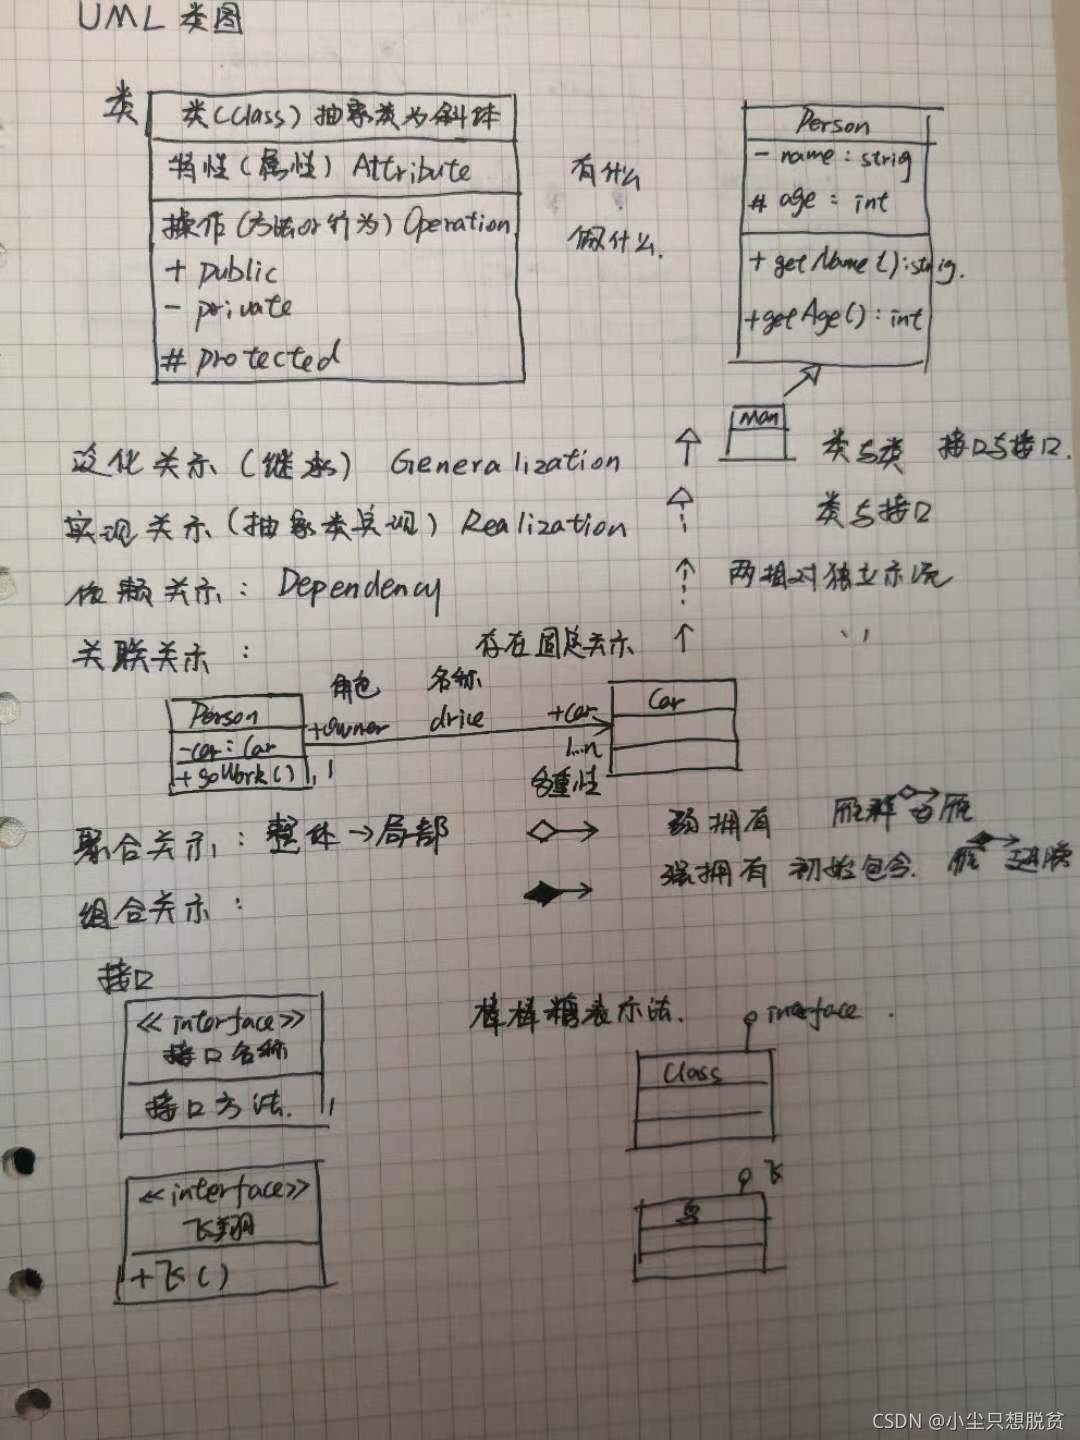 UML 类图
类
类(Class)抽象类为斜体
特性(属性)Attribute
有什么
操作(方法or行为)Operation
做什么.
+ public
- private
# protected
Person
- name : strig
# age : int
+ getName():strig.
+getAge():int
Man
泛化关系(继承) Generalization
类与类 接口与接口.
实现关系(抽象类实现)Realization
类与接口
依赖关系: Dependency
两相对独立系统
关联关系:
存在固定关系
角色 名称
Person
-car:Car
+goWork()
+owner
drive
+car
1...n
多重性
Car
聚合关系:整体→局部
弱拥有 雁群与雁
组合关系:
强拥有 初始包含. 雁 翅膀
接口
<<interface>>
接口名称
接口方法.
棒棒糖表示法.
interface
Class
<<interface>>
飞翔
+飞()
飞
鸟
CSDN @小尘只想脱贫